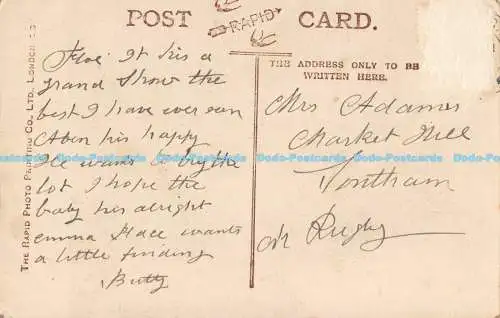 POST CARD.
RAPID
THE ADDRESS ONLY TO BE
WRITTEN HERE.
THE RAPID PHOTO PRINTING CO., LTD., LONDON
Floe It his a
grand Show the
best I have ever seen
his happy
He wants the
lot I hope the
baby his alright
emma wants
a little finding
Mrs Adams
Market Hill
Nr Rugby
Dodo-Postcards Dodo-Postcards Dodo-Postcards